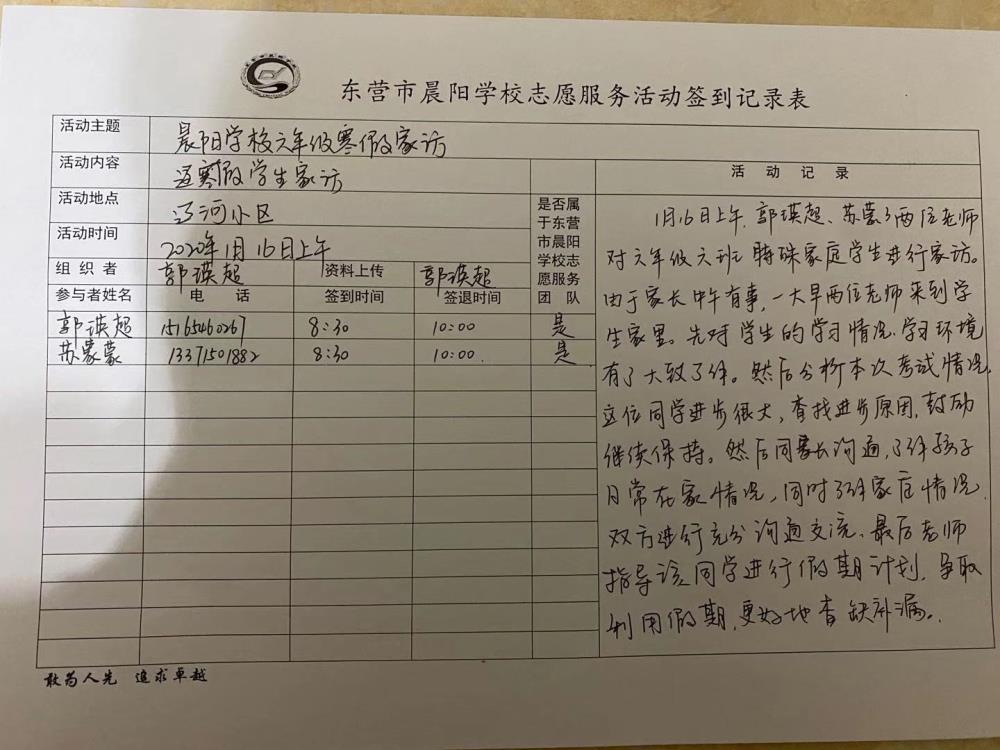 东营市晨阳学校志愿服务活动签到记录表
活动主题 晨阳学校六年级寒假家访
活动内容 寒假学生家访
活动地点 辽河小区
活动时间 2020年1月16日上午
组织者 郭瑛超 资料上传 郭瑛超
参与者姓名 电话 签到时间 签退时间
是否属
于东营
市晨阳
学校志
愿服务
团队
郭瑛超 15165460267 8:30 10:00 是
苏蒙 13371501882 8:30 10:00. 是
活动记录
1月16日上午,郭瑛超、苏蒙两位老师
对六年级六班特殊家庭学生进行家访。
由于家长中午有事,一大早两位老师来到学
生家里。先对学生的学习情况、学习环境
有了大致了解。然后分析本次考试情况,
这位同学进步很大,查找进步原因,鼓励
继续保持。然后同家长沟通,了解孩子
日常在家情况,同时了解家庭情况.
双方进行充分沟通交流、最后老师
指导该同学进行假期计划,争取
利用假期,更好地查缺补漏。
敢为人先 追求卓越